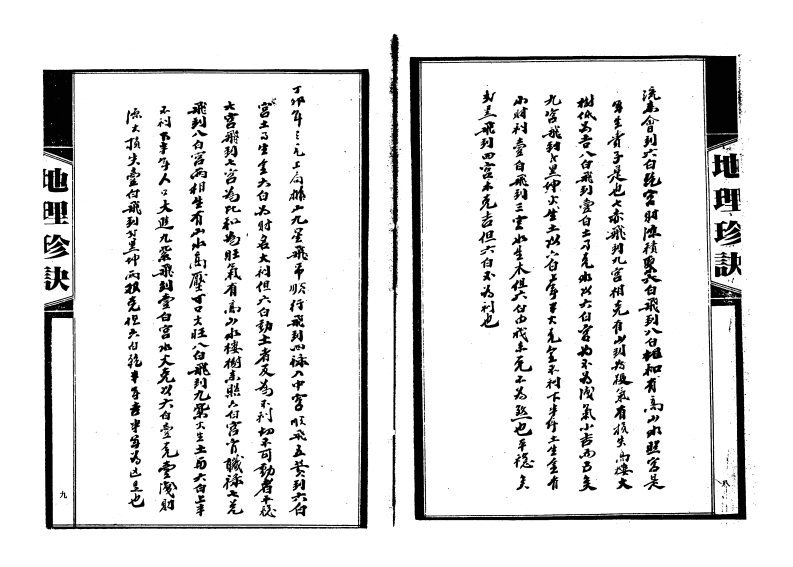 地理珍訣
八
流年會到六白乾宮財源積聚六白飛到八白相和有高山水照宮是
年生貴子是也七赤飛到九宮相克有山到為殺氣有損失高樓大
樹低為吉八白飛到壹白土可克水以六白宮為不為洩氣小吉而已矣
九宮飛到弍黑坤火生土以六白上半年火克金不利下半年土生金有
小財利壹白飛到三雲水生木但六白由我來克不為熬也平穩矣
弍黑飛到四宮木克吉但六白不為利也
丁卯年三元上局推一九星飛吊順行飛到四祿入中宮順飛五黃到六白
宮土可生金六白為財名大利但六白動土者反為不利切不可動者平穩
六宮飛到七宮為比和為旺氣有高山水樓樹來照六白宮官職祿七克
飛到八白宮兩相生有山水高壓可口大旺八白飛到九紫火生土而六白上半
不利下半年人口大進九紫飛到壹白宮水火克以六白壹克雲洩財
源大損失壹付飛到弍黑坤兩相克但六白乾半年吉半年為凶是也
地理珍訣
九